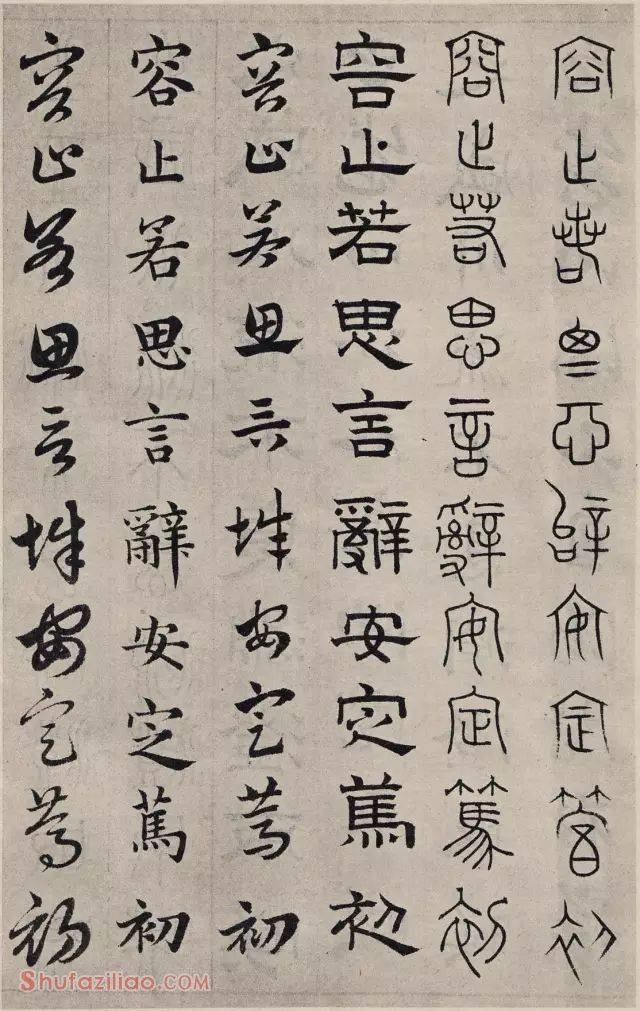 容止若思言辭安定篤初
容止若思言辭安定篤初
容止若思言辭安定篤初
容止若思言辭安定篤初
容止若思言辭安定篤初
容止若思言辭安定篤初
Shufaziliao.com